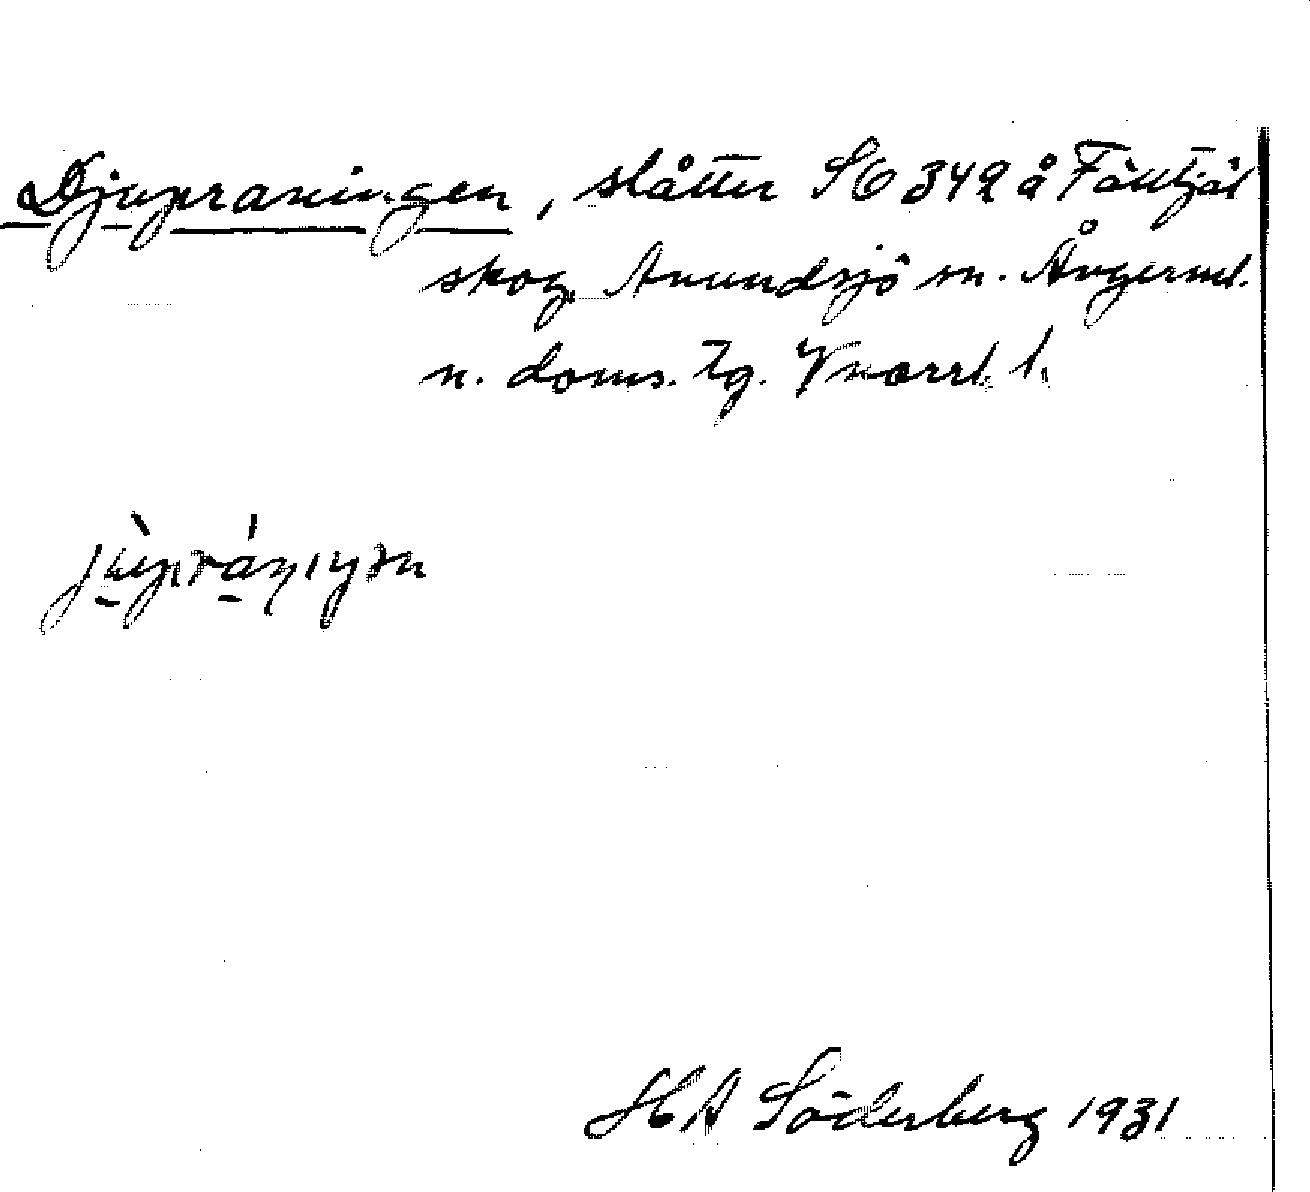 Djupraningen, slåtter SO 342 å Fäbtjäl
skog Anundsjö sn. Ångerml.
n. doms. Tg. Vnorrl. l.
H A Söderberg 1931